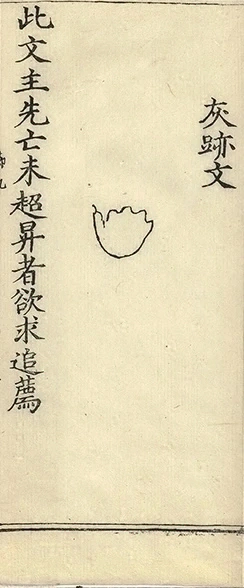 灰跡文
此文主先亡未超昇者欲求追薦